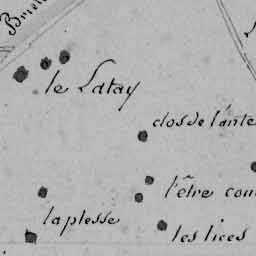 le Latay
clos de l'ante
l'être cou
la plesse
les lices